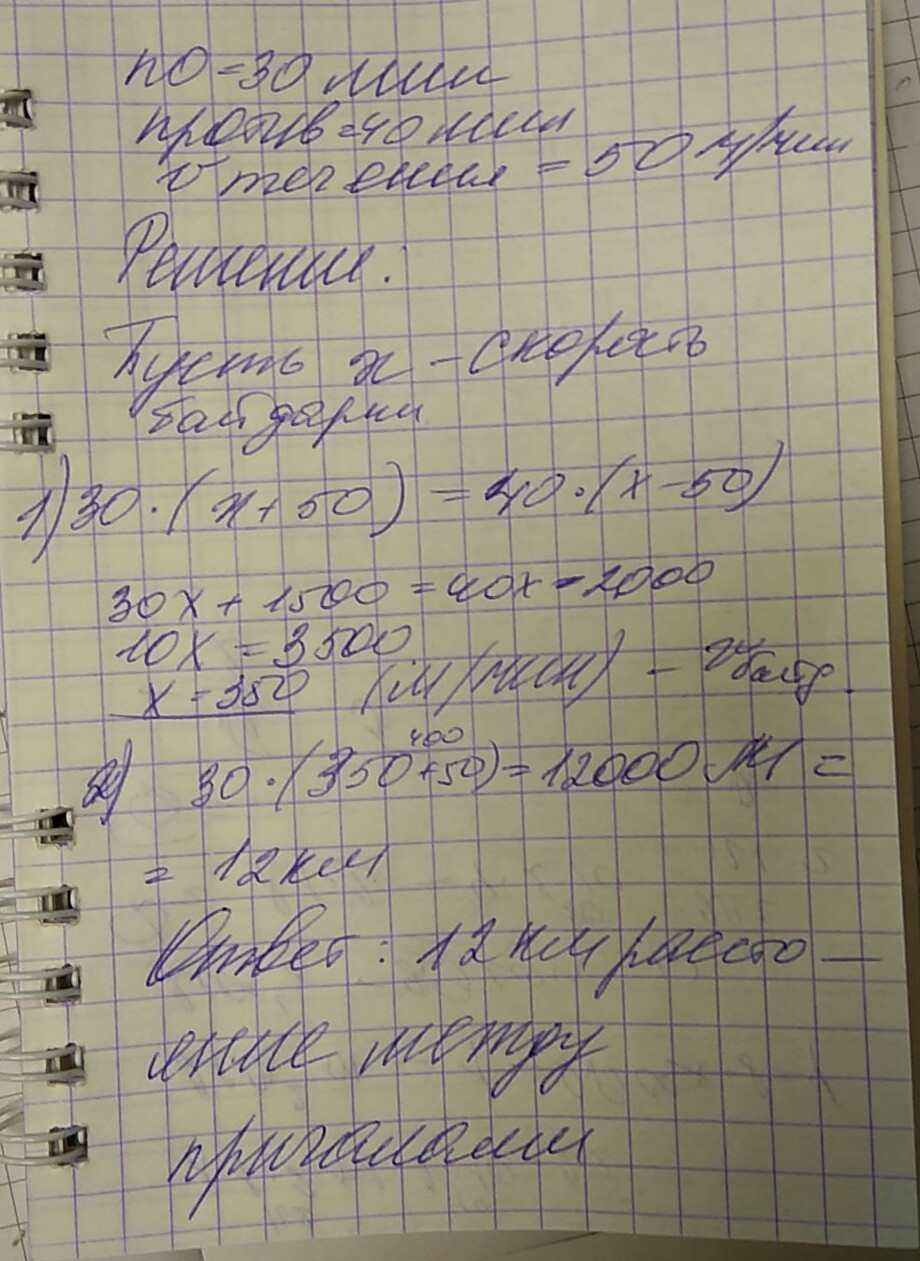 по = 30 мин
против = 40 мин
v течения = 50 м/мин
Решение:
Пусть х - скорость
байдарки
1) 30 · (х + 50) = 40 · (х - 50)
30х + 1500 = 40х - 2000
10х = 3500
х = 350 (м/мин) - v байд.
400
2) 30 · (350 + 50) = 12000 м =
= 12 км
Ответ: 12 км рассто -
яние между
причалами